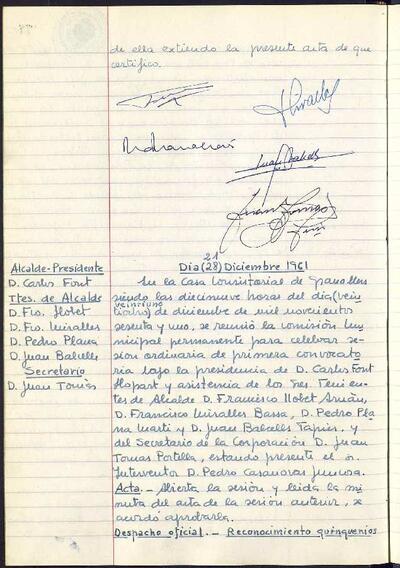 de ella extiendo la presente acta de que
certifico.
21
Dia (28) Diciembre 1961
Alcalde-Presidente
D. Carlos Font
Ttes. de Alcalde
D. Fco. Llobet
D. Fco. Miralles
D. Pedro Plana
D. Juan Babells
Secretario
D. Juan Tomás
En la Casa Consistorial de Granollers
siendo las diecinueve horas del dia (vein
veintiuno
tiocho) de diciembre de mil novecientos
sesenta y uno, se reunió la Comisión Mu
nicipal permanente para celebrar se
sión ordinaria de primera convocato
ria bajo la presidencia de D. Carlos Font
Llopart y asistencia de los Sres. Tenien
tes de Alcalde D. Francisco Llobet Arnán,
D. Francisco Miralles Bassa, D. Pedro Pla
na Marti y D. Juan Babells Tapies, y
del Secretario de la Corporación D. Juan
Tomas Portilla, estando presente el Sr.
Interventor D. Pedro Casanovas
Acta.- Abierta la sesión y leida la mi
nuta del acta de la sesión anterior, se
acordó aprobarla.
Despacho oficial.- Reconocimiento quinquenios